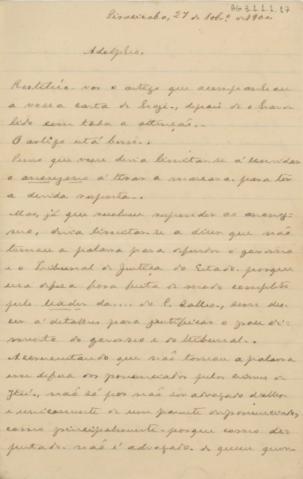 AG 3.1.1.1.17
Piracicaba, 27 de de 1900
Adolpho.
Restitúo-vos o artigo que acompanhou
a vossa carta de hoje, depois de o haver
lido com toda a attenção.
O artigo está bom.
Penso que você devia limitar-se á convidar
o anonymo á tirar a mascara para ter
a devida resposta.
Mas, já que resolveu responder ao anony-
mo, devia limitar-se a dizer que não
tomou a palavra para defender o governo
e o Tribunal de Justiça do Estado, porque
essa defesa fora feita de modo completo
pelo leader da.... do C. Salles, sem des-
cer á detalhes para justificar o procedi-
mento do governo e do tribunal.
Accrescentando que não tomou a palavra
em defesa dos pronunciados pelos crimes de
não só por não ser advogado d'elles
e unicamente de um parente de pronunciado,
como principalmente porque como de-
putado não é advogado de quem quer